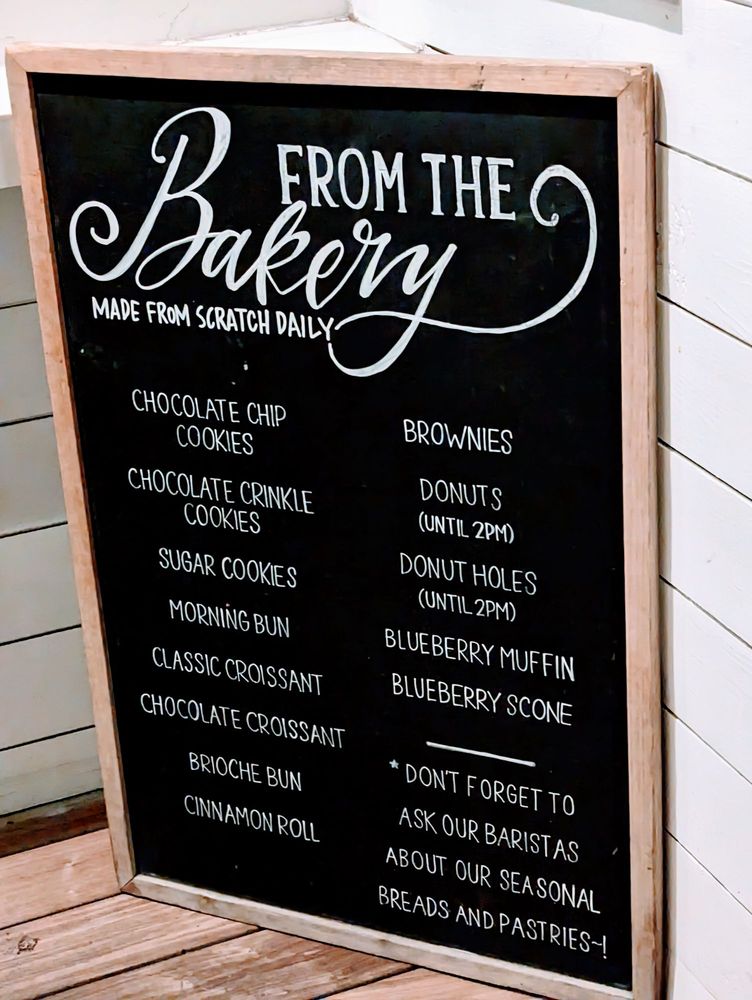 FROM THE
Bakery
MADE FROM SCRATCH DAILY
CHOCOLATE CHIP
COOKIES
CHOCOLATE CRINKLE
COOKIES
SUGAR COOKIES
MORNING BUN
CLASSIC CROISSANT
CHOCOLATE CROISSANT
BRIOCHE BUN
CINNAMON ROLL
BROWNIES
DONUTS
(UNTIL 2PM)
DONUT HOLES
(UNTIL 2PM)
BLUEBERRY MUFFIN
BLUEBERRY SCONE
* DON'T FORGET TO
ASK OUR BARISTAS
ABOUT OUR SEASONAL
BREADS AND PASTRIES~!